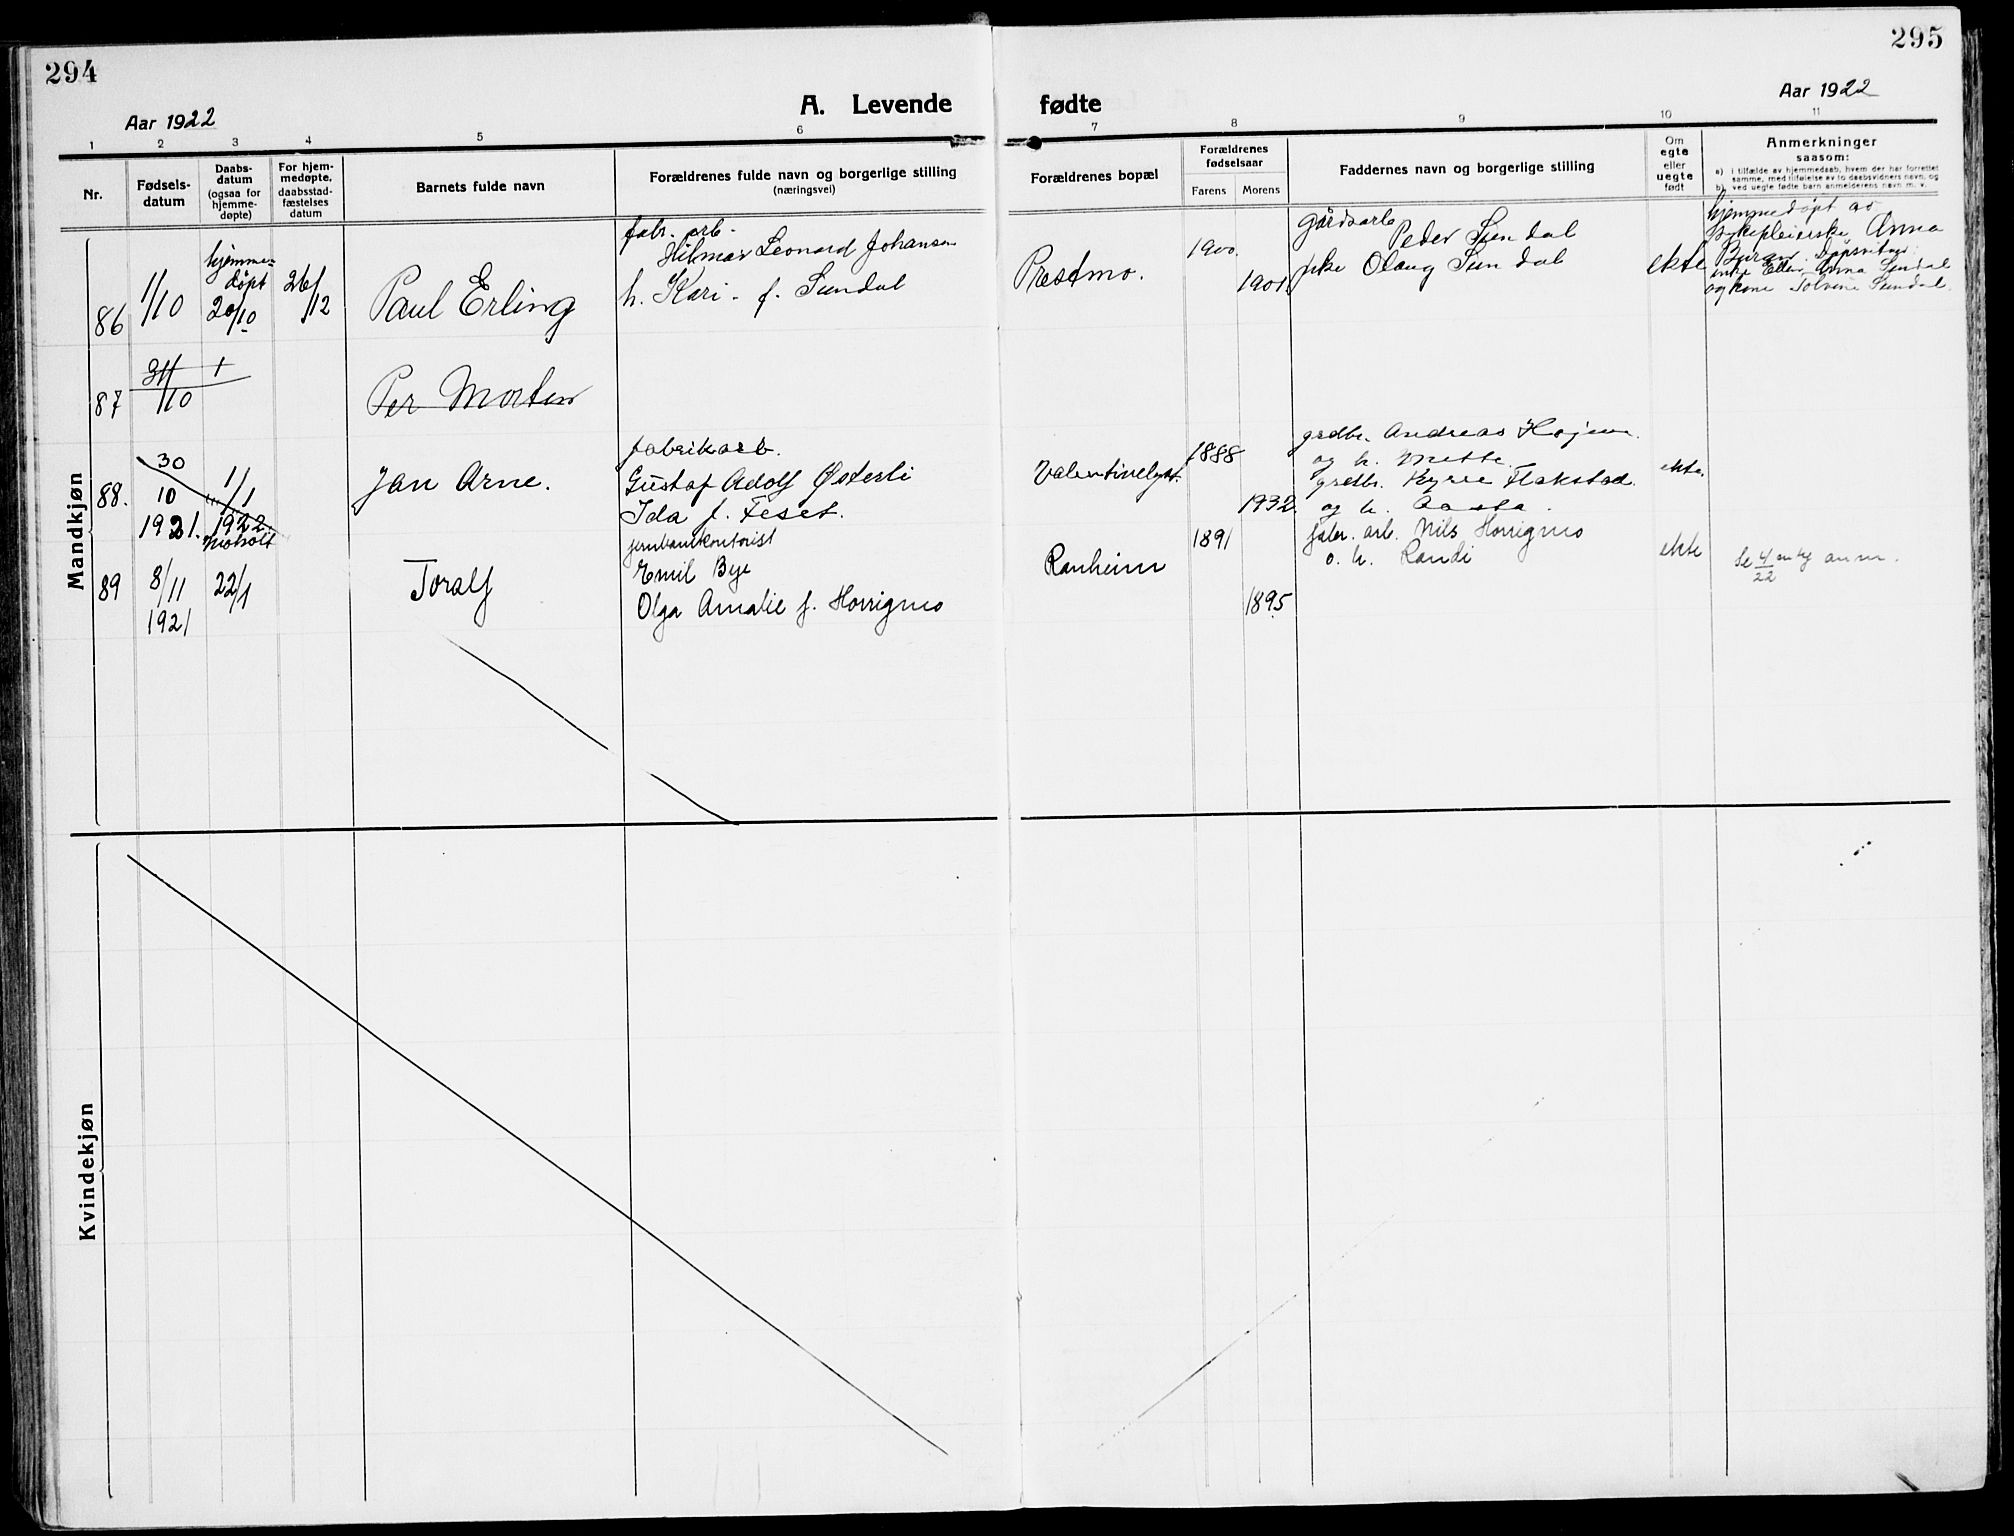 294
295
Aar 1922
A. Levende fødte
Aar 1922
1 2 3 4 5 6 7 8 9 10 11
Nr.
Fødsels-
datum
Daabs-
datum
(ogsaa for
hjemme-
døpte)
For hjem-
medøpte,
daabsstad-
fæstelses
datum
Barnets fulde navn
Forældrenes fulde navn og borgerlige stilling
(næringsvei)
Forældrenes bopæl
Forældrenes
fødselsaar
Farens Morens
Faddernes navn og borgerlige stilling
Om
egte
eller
uegte
født
Anmerkninger
saasom:
a) i tilfælde av hjemmedaab, hvem der har forrettet
samme, med tilføielse av to daabsvidners navn, og
b) ved uegte fødte barn anmelderens navn m. v.
Mandkjøn
86
1/10
hjemme-
døpt
20/10
26/12
Paul Erling
fabr. arb.
Hilmar Leonard Johansen
h. Kari f. Sundal
Præstmo.
1900
1901
gårdsarb
Peder Sundal
pike Olaug Sundal
ekte
hjemmedøpt av
sykepleierske Anna
Buran. Døpsvitner:
enke Ellen Anna Sundal
og kone Solveig Sundal.
87
31/10
1
Per Morten
88.
30
10
1921.
1/1
1922.
Moholt
Jan Arne.
fabrikarb.
Gustaf Adolf Østerli
Ida f. Feset.
Valentinelyst.
1888
1932.
grdbr. Andreas Højem
og h. Mette.
grdbr. Kyrre Flakstad.
og h. Aasta.
ekte.
89
8/11
1921
22/1
Toralf
jernbanekontorist
Emil Bye
Olga Amalie f. Horrigmo
Ranheim
1891
1895
fabr. arb. Nils Horrigmo
o. h. Randi
ekte
Se 4/22 anm.
Kvindekjøn